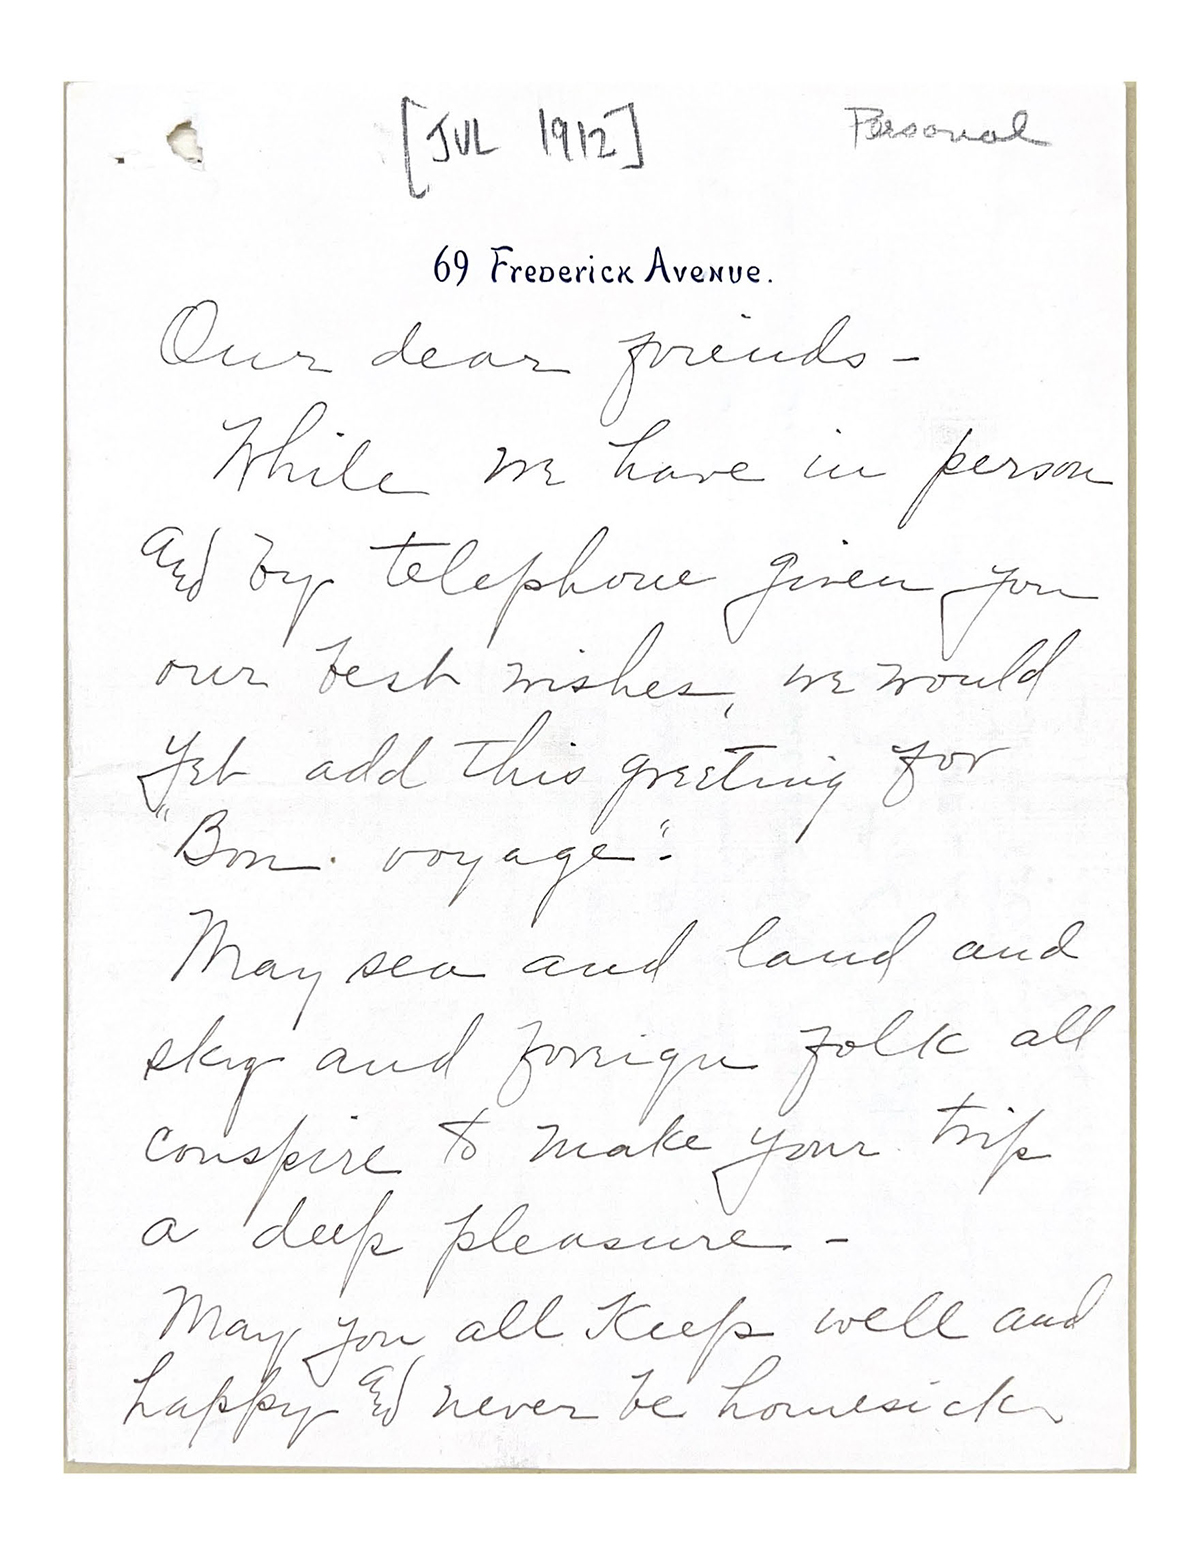 [JUL 1912] Personal
69 Frederick Avenue.
Our dear friends -
While we have in person
and by telephone given you
our best wishes, we would
yet add this greeting for
"Bon voyage".
May sea and land and
sky and foreign folk all
conspire to make your trip
a deep pleasure -
May you all keep well and
happy and never be homesick